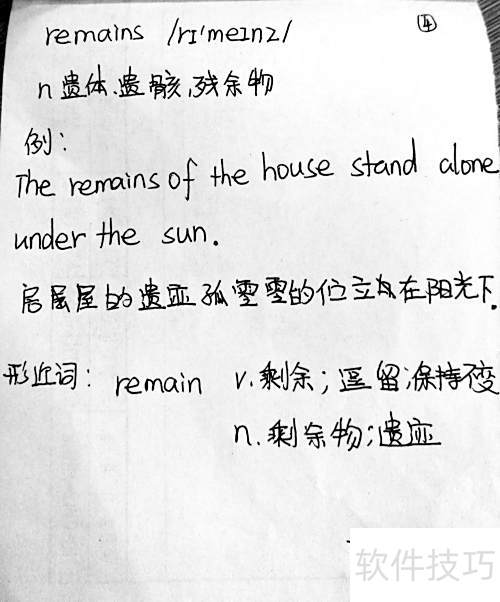 remains /rɪ'meɪnz/ ④
n 遗体、遗骸,残余物
例：
The remains of the house stand alone
under the sun.
房屋的遗迹孤零零的位立在阳光下.
形近词： remain v.剩余；逗留;保持不变
n.剩余物;遗迹
软件技巧